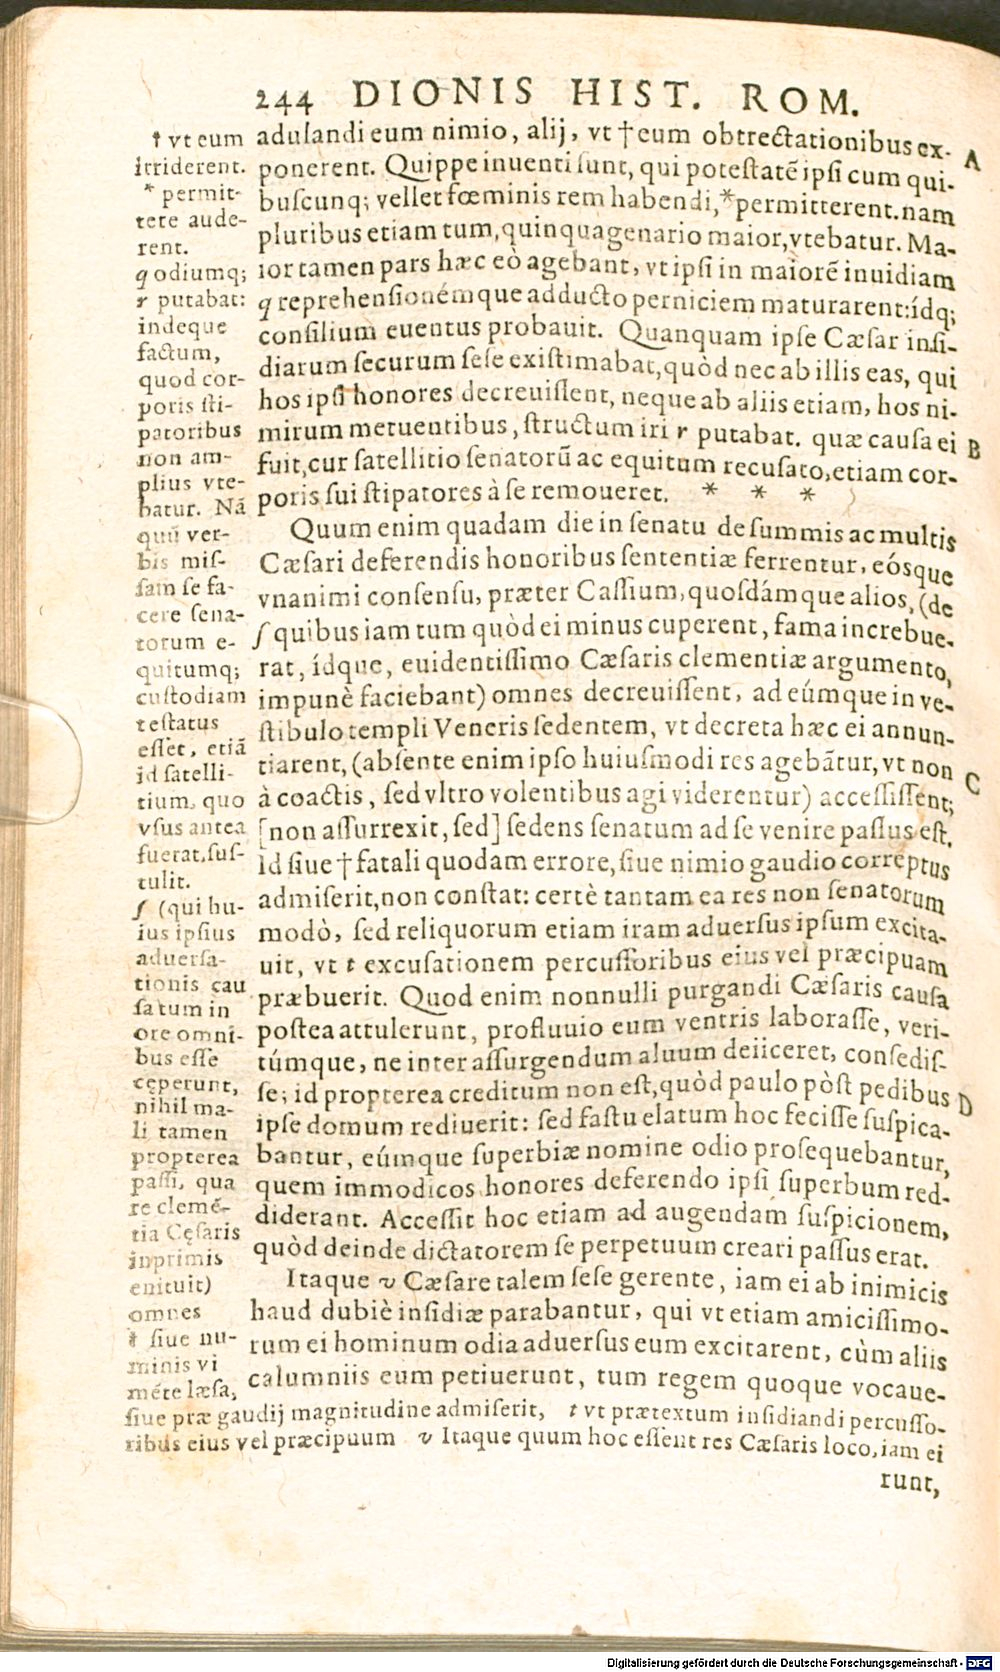 244 DIONIS HIST. ROM.
adulandi eum nimio, alij, vt † eum obtrectationibus ex-
ponerent. Quippe inuenti sunt, qui potestatẽ ipsi cum qui-
buscunq; vellet fœminis rem habendi, *permitterent. nam
pluribus etiam tum, quinquagenario maior, vtebatur. Ma-
ior tamen pars hæc eò agebant, vt ipsi in maiorẽ inuidiam
q reprehensionémque adducto perniciem maturarent: ídq;
consilium euentus probauit. Quanquam ipse Cæsar insi-
diarum securum sese existimabat, quòd nec ab illis eas, qui
hos ipsi honores decreuissent, neque ab aliis etiam, hos ni-
mirum metuentibus, structum iri r putabat. quæ causa ei
fuit, cur satellitio senatorũ ac equitum recusato, etiam cor-
poris sui stipatores à se remoueret. * * *
Quum enim quadam die in senatu de summis ac multis
Cæsari deferendis honoribus sententiæ ferrentur, eósque
vnanimi consensu, præter Cassium, quosdámque alios, (de
ſ quibus iam tum quòd ei minus cuperent, fama increbue-
rat, ídque, euidentissimo Cæsaris clementiæ argumento,
impunè faciebant) omnes decreuissent, ad eúmque in ve-
stibulo templi Veneris sedentem, vt decreta hæc ei annun-
tiarent, (absente enim ipso huiusmodi res agebãtur, vt non
à coactis, sed vltro volentibus agi viderentur) accessissent;
[non assurrexit, sed] sedens senatum ad se venire passus est.
Id siue † fatali quodam errore, siue nimio gaudio correptus
admiserit, non constat: certè tantam ea res non senatorum
modò, sed reliquorum etiam iram aduersus ipsum excita-
uit, vt t excusationem percussoribus eius vel præcipuam
præbuerit. Quod enim nonnulli purgandi Cæsaris causa
postea attulerunt, profluuio eum ventris laborasse, veri-
túmque, ne inter assurgendum aluum deiiceret, consedis-
se; id propterea creditum non est, quòd paulo pòst pedibus
ipse domum rediuerit: sed fastu elatum hoc fecisse suspica-
bantur, eúmque superbiæ nomine odio prosequebantur,
quem immodicos honores deferendo ipsi superbum red-
diderant. Accessit hoc etiam ad augendam suspicionem,
quòd deinde dictatorem se perpetuum creari passus erat.
Itaque v Cæsare talem sese gerente, iam ei ab inimicis
haud dubiè insidiæ parabantur, qui vt etiam amicissimo-
rum ei hominum odia aduersus eum excitarent, cùm aliis
calumniis eum petiuerunt, tum regem quoque vocaue-
A
B
C
D
† vt eum
irriderent.
* permit-
tere aude-
rent.
q odiumq;
r putabat:
indeque
factum,
quod cor-
poris sti-
patoribus
non am-
plius vte-
batur. Nã
quũ ver-
bis mis-
sam se fa-
cere sena-
torum e-
quitumq;
custodiam
testatus
esset, etiã
id satelli-
tium, quo
vsus antea
fuerat, sus-
tulit.
ſ (qui hu-
ius ipsius
aduersa-
tionis cau
sa tum in
ore omni-
bus esse
cęperunt,
nihil ma-
li tamen
propterea
passi, qua
re clemẽ-
tia Cęsaris
inprimis
enituit)
omnes
† siue nu-
minis vi
mẽte læsa,
siue præ gaudij magnitudine admiserit, t vt prætextum insidiandi percusso-
ribus eius vel præcipuum v Itaque quum hoc essent res Cæsaris loco, iam ei
runt,
Digitalisierung gefördert durch die Deutsche Forschungsgemeinschaft - DFG